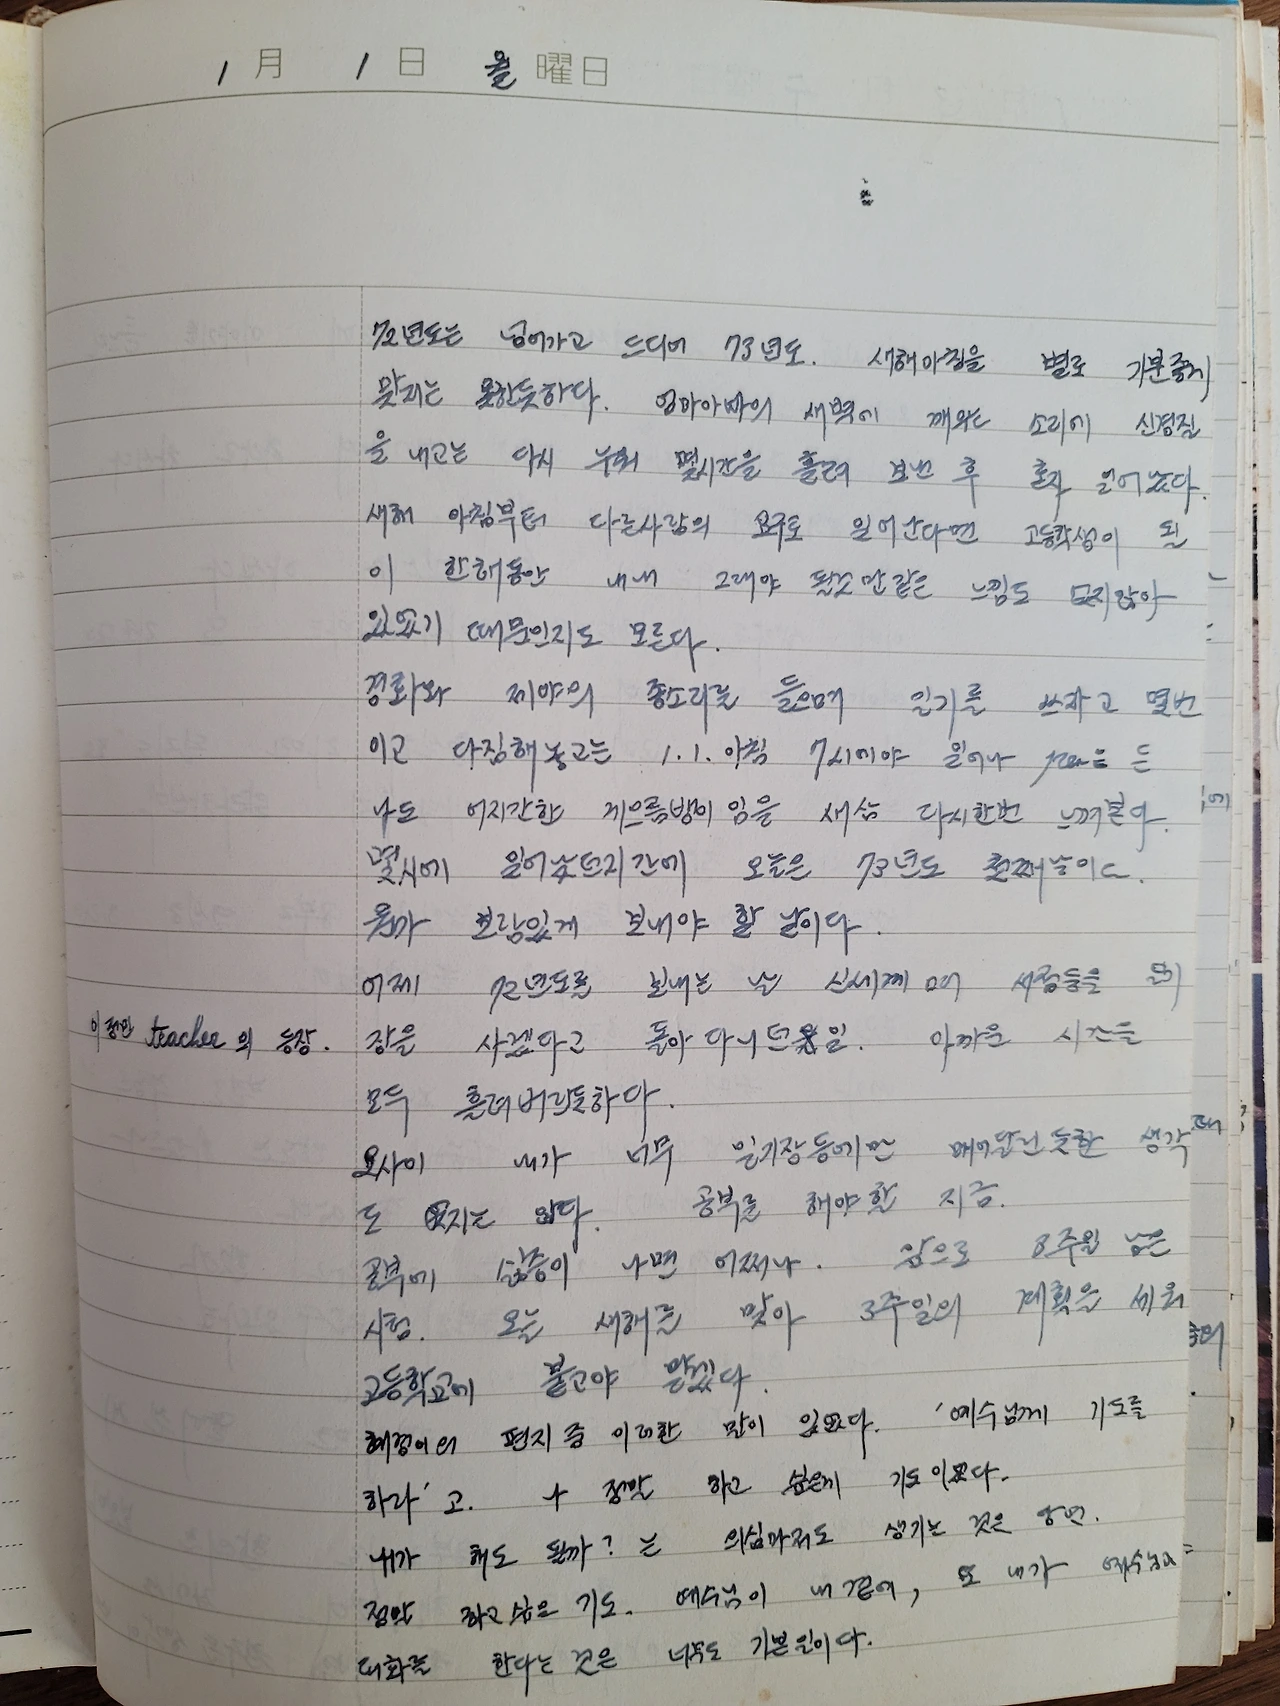 1月 1日 월曜日
72년도는 넘어가고 드디어 73년도. 새해아침을 별로 기분좋게
맞지는 못한듯하다. 엄마아빠의 새벽에 깨우는 소리에 신경질
을 내고는 다시 누워 몇시간을 흘려 보낸 후 혼자 일어났다.
새해 아침부터 다른사람의 요구로 일어난다면 고등학생이 될
이 한해동안 내내 그래야 될것만같은 느낌도 없지않아
있었기 때문인지도 모른다.
경화와 제야의 종소리를 들으며 일기를 쓰자고 몇번
이고 다짐해놓고는 1.1. 아침 7시에야 일어나 pen을 든
나도 어지간한 게으름뱅이임을 새삼 다시한번 느껴본다.
몇시에 일어났던지간에 오늘은 73년도 첫째날이다.
뭔가 보람있게 보내야 할 날이다.
어제 72년도를 보내는 날 신세계며 서점등을 일기
이정만 teacher의 등장. 장을 사겠다고 돌아다니던 일. 아까운 시간을
모두 흘려버린듯하다.
요사이 내가 너무 일기장등에만 매어달린듯한 생각
도 없지는 않다. 공부를 해야할 지금.
공부에 싫증이 나면 어쩌나. 앞으로 3주일 남은
시험. 오늘 새해를 맞아 3주일의 계획을 세워
고등학교에 붙고야 말겠다.
혜정이의 편지중 이러한 말이 있었다. '예수님께 기도를
하라'고. 나 정말 하고 싶은게 기도이었다.
내가 해도 될까? 는 의심마저도 생기는 것은 당연.
정말 하고싶은 기도. 예수님이 내 곁에, 또 내가 예수님과
대화를 한다는 것은 너무도 기쁜일이다.